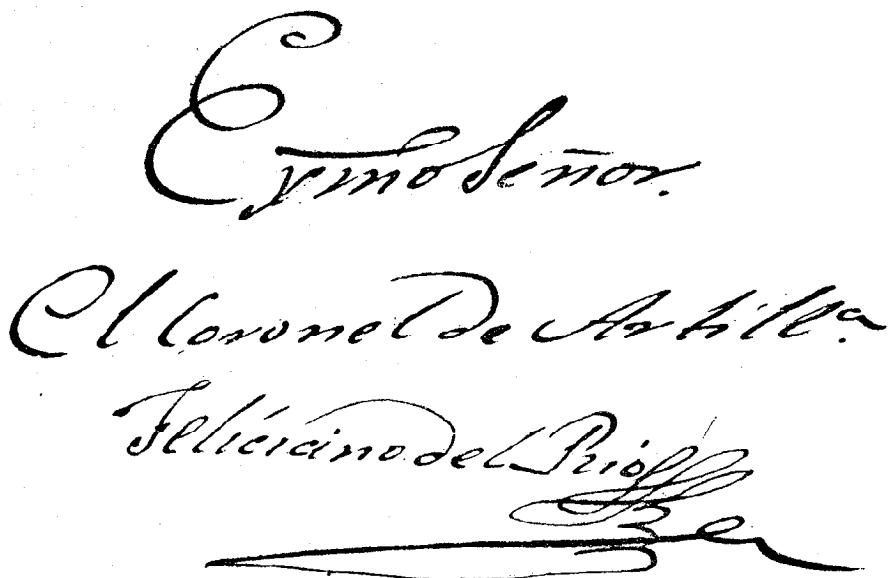 Exmo Señor.
El Coronel de Artill.ª
Feliciano del Rio